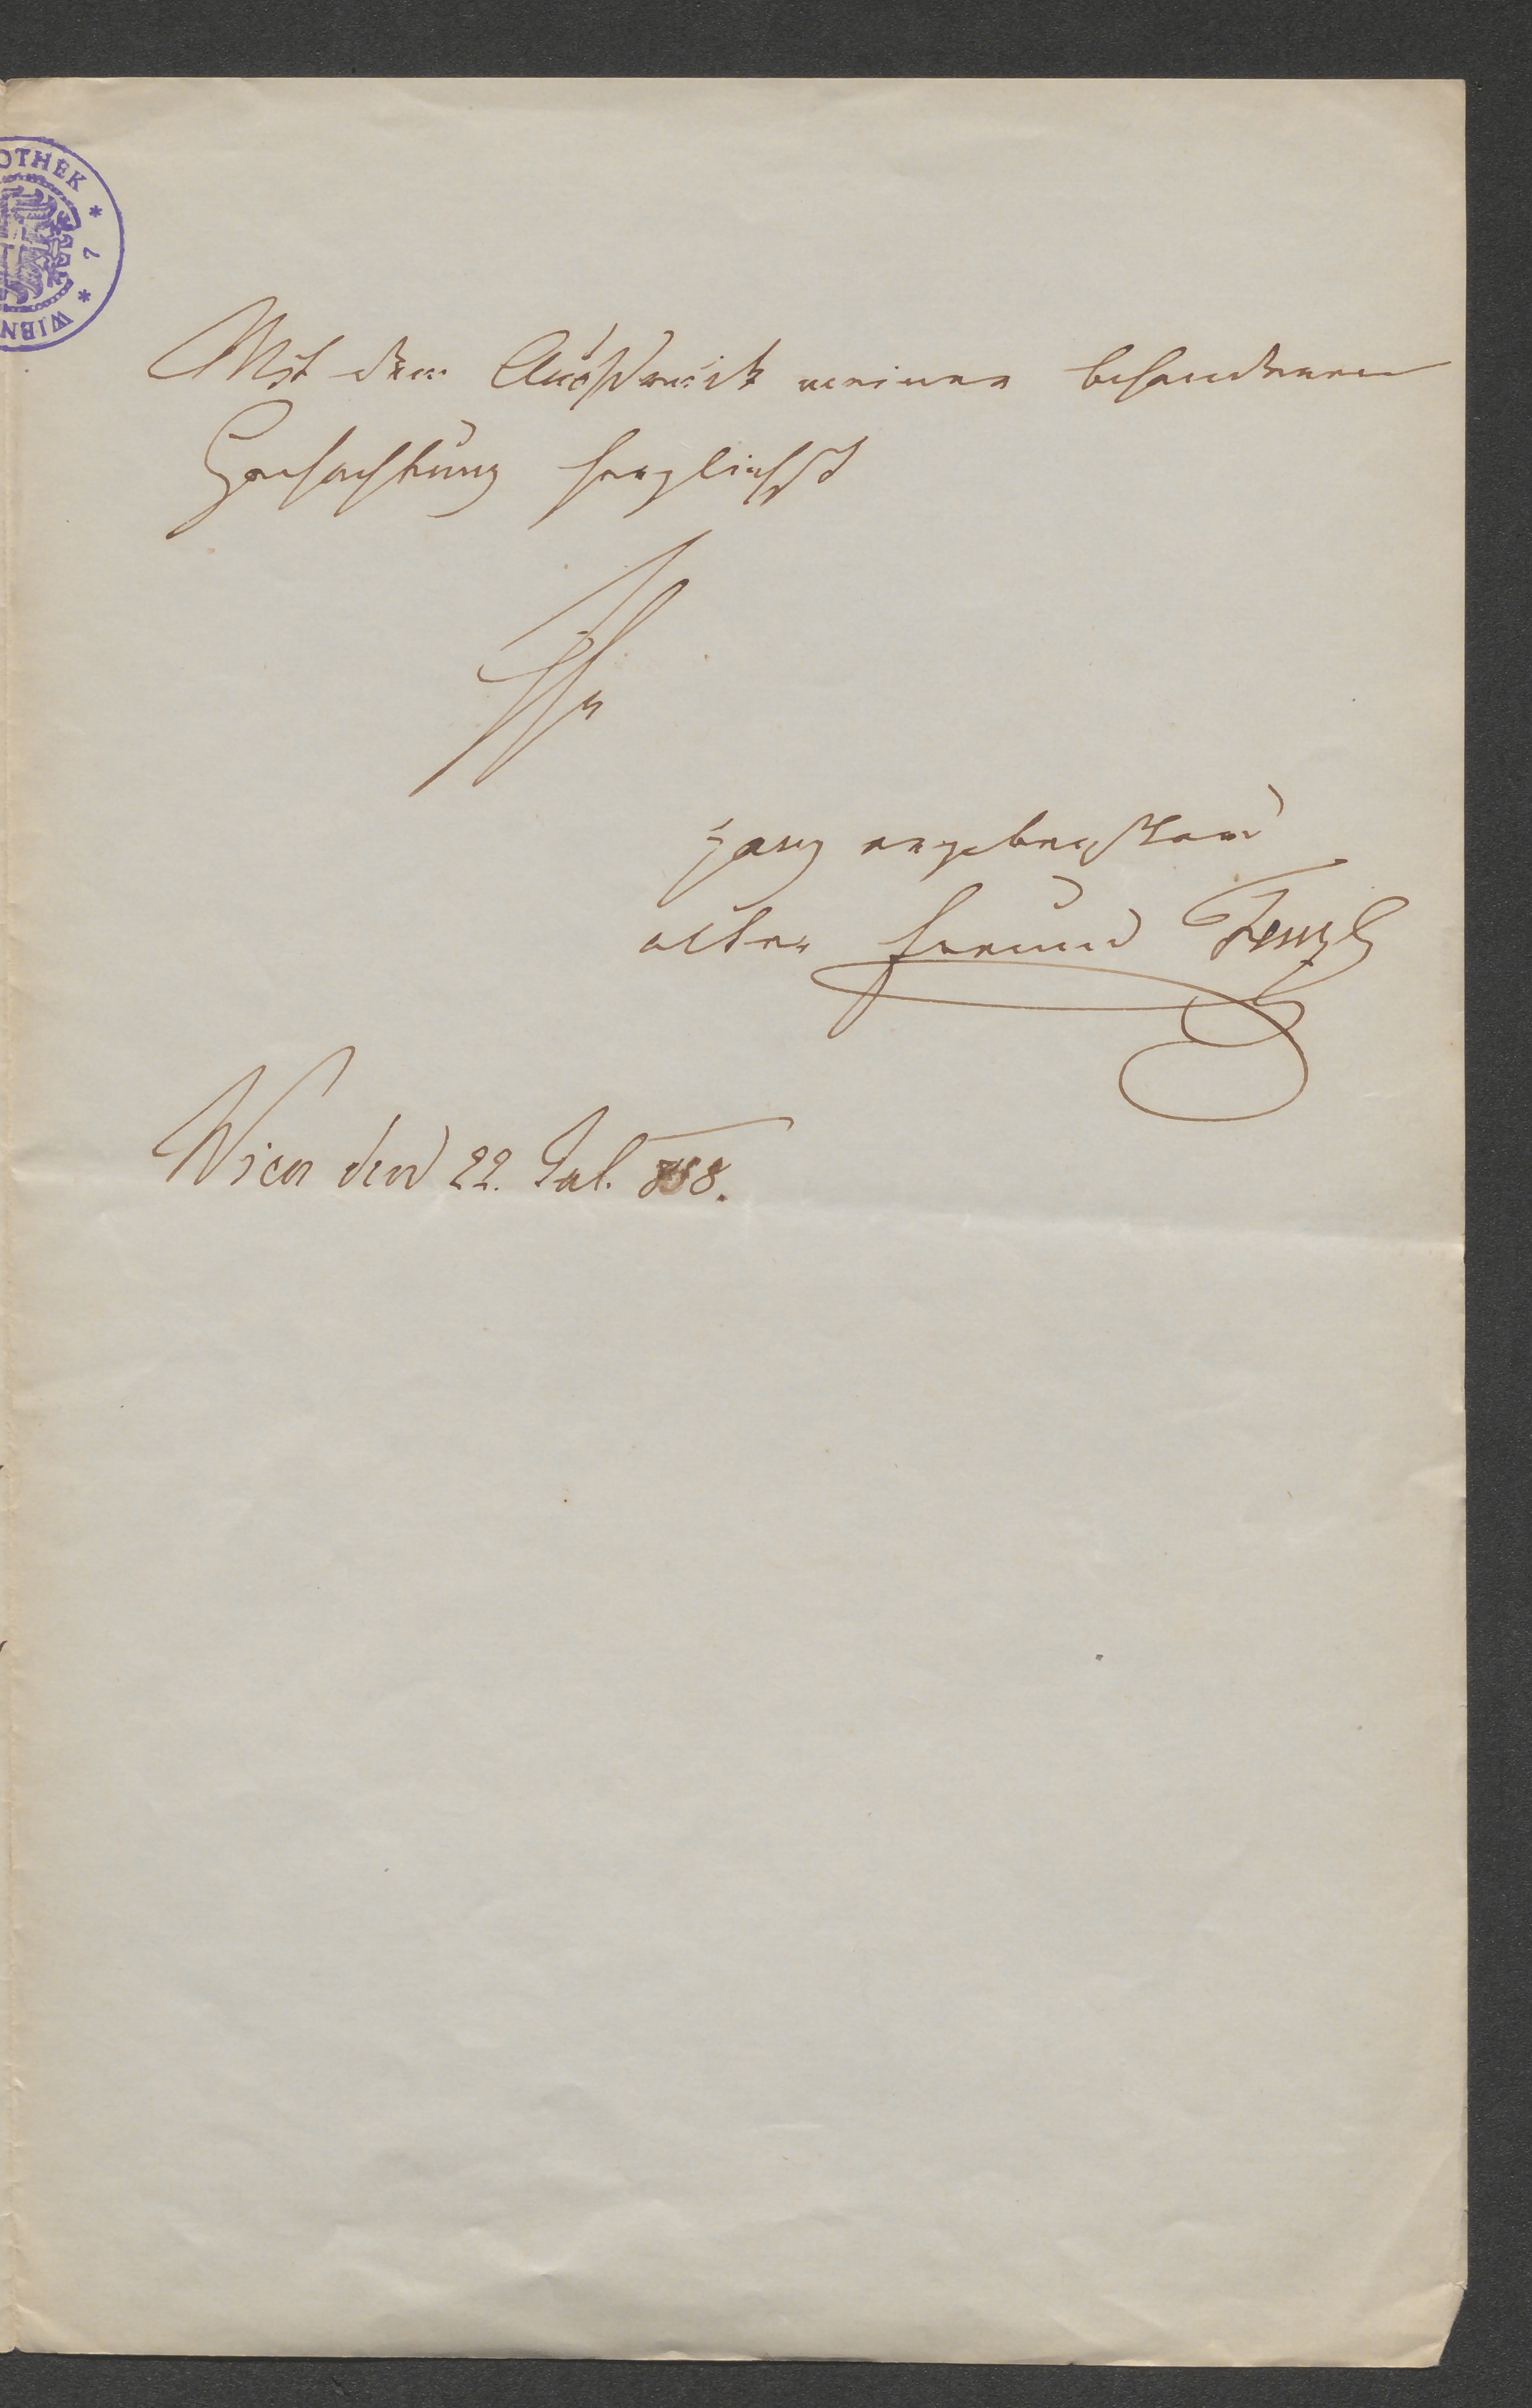 OTHEK * 7 * WIEN
Mit dem Ausdruck meiner besonderen
Hochachtung herzlichst
Ihr
ganz ergebenster
alter Freund Fenzl
Wien den 22. Jul. 858.